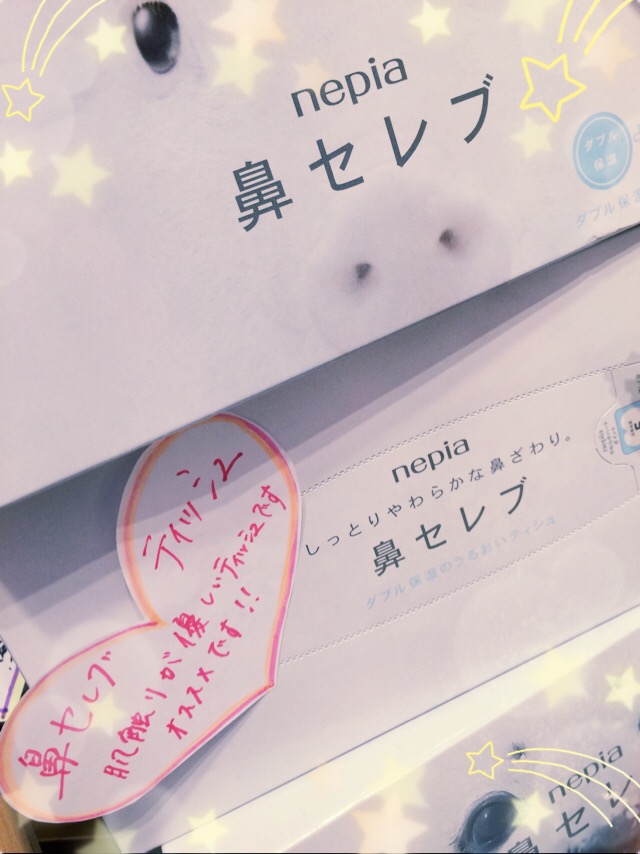 nepia
鼻セレブ
ダブル
保湿
ダブル保湿
nepia
しっとりやわらかな鼻ざわり。
鼻セレブ
ダブル保湿のうるおいティシュ
ティッシュ
鼻セレブ
肌触りが優しいティッシュです
オススメです!!
nepia
鼻セレ